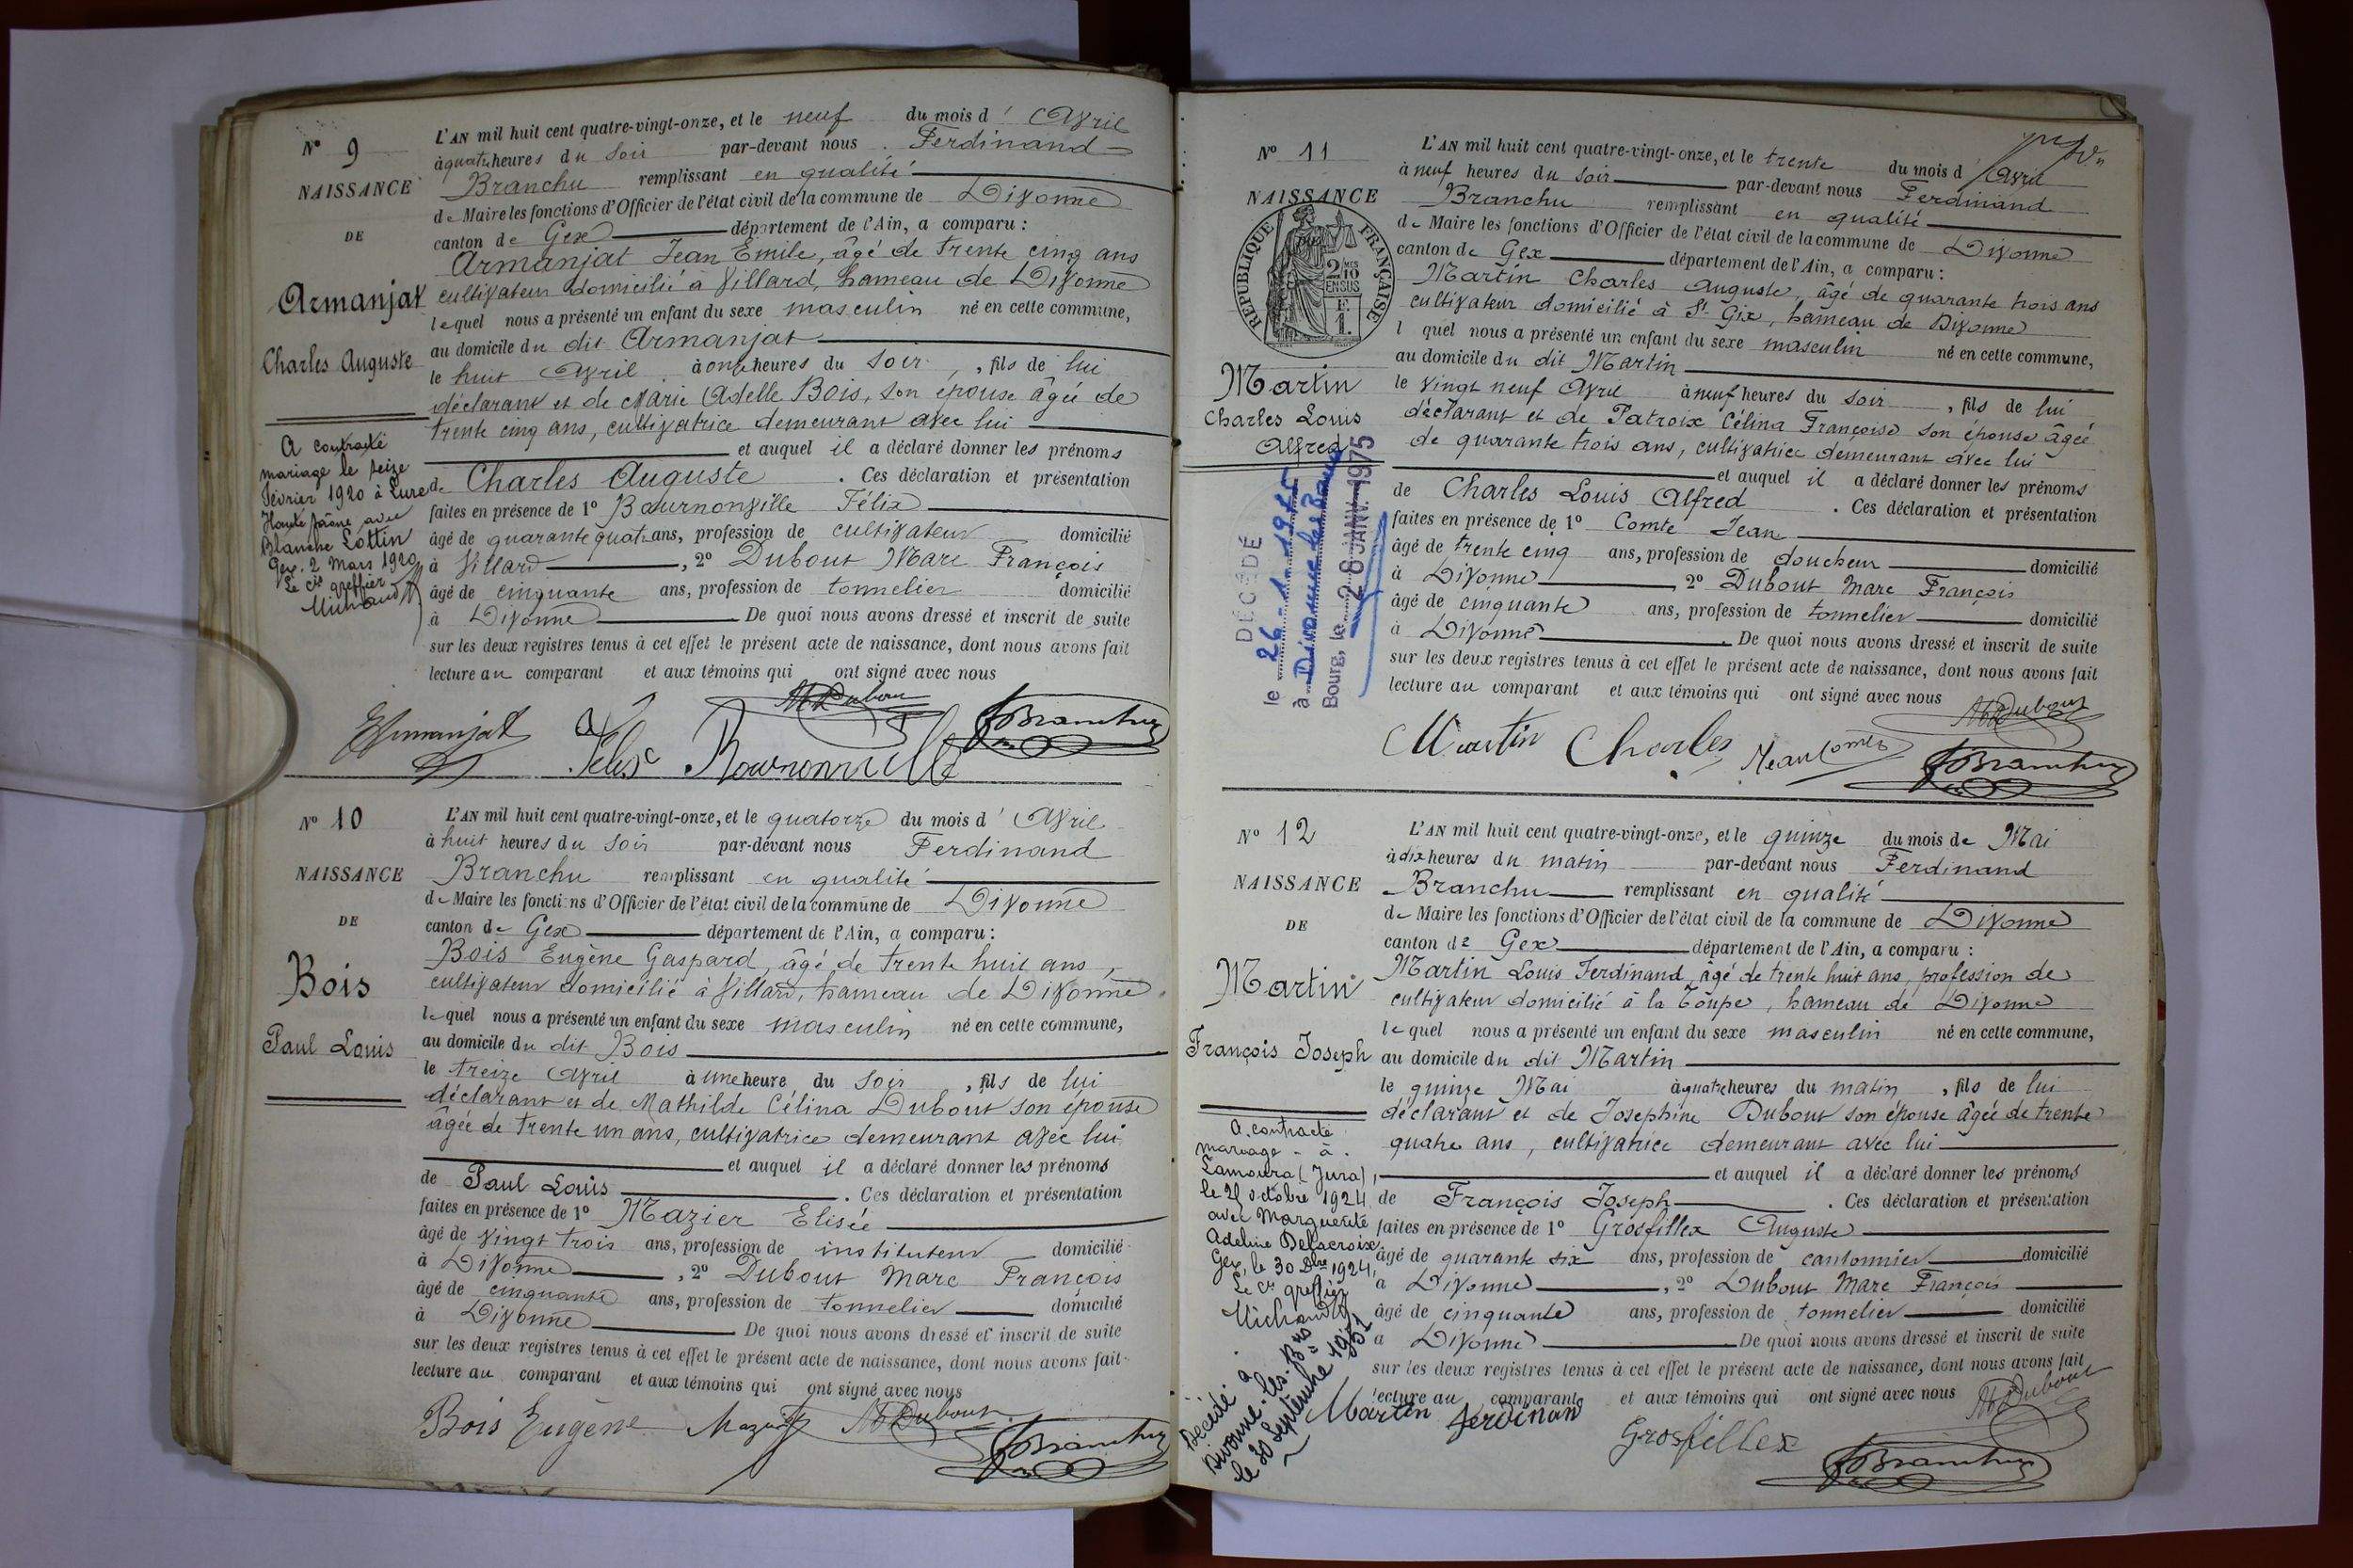 N° 9
NAISSANCE
DE
Armanjat
Charles Auguste
A contracté
mariage le seize
Février 1920 à Lure
Haute Saône avec
Blanche Lottin
Gex. 2 Mars 1920
Le cis greffier
Michaud
L'AN mil huit cent quatre-vingt-onze, et le neuf du mois d' Avril
à quatre heures du soir par-devant nous Ferdinand
Branchu remplissant en qualité
de Maire les fonctions d'Officier de l'état civil de la commune de Divonne
canton de Gex département de l'Ain, a comparu :
Armanjat Jean Emile, âgé de trente cinq ans
cultivateur domicilié à Villard, hameau de Divonne
lequel nous a présenté un enfant du sexe masculin né en cette commune,
au domicile du dit Armanjat
le huit Avril à onze heures du soir, fils de lui
déclarant et de Marie Adelle Bois, son épouse âgée de
trente cinq ans, cultivatrice demeurant avec lui
et auquel il a déclaré donner les prénoms
de Charles Auguste. Ces déclaration et présentation
faites en présence de 1° Bournonville Félix
âgé de quarante quatre ans, profession de cultivateur domicilié
à Villard, 2° Dubout Marc François
âgé de cinquante ans, profession de tonnelier domicilié
à Divonne De quoi nous avons dressé et inscrit de suite
sur les deux registres tenus à cet effet le présent acte de naissance, dont nous avons fait
lecture au comparant et aux témoins qui ont signé avec nous
MDubout
Armanjat Félix Bournonville FBranchu
N° 10
NAISSANCE
DE
Bois
Paul Louis
L'AN mil huit cent quatre-vingt-onze, et le quatorze du mois d' Avril
à huit heures du soir par-devant nous Ferdinand
Branchu remplissant en qualité
de Maire les fonctions d'Officier de l'état civil de la commune de Divonne
canton de Gex département de l'Ain, a comparu :
Bois Eugène Gaspard, âgé de trente huit ans,
cultivateur domicilié à Villard, hameau de Divonne
lequel nous a présenté un enfant du sexe masculin né en cette commune,
au domicile du dit Bois
le treize Avril à une heure du soir, fils de lui
déclarant et de Mathilde Célina Dubout son épouse
âgée de trente un ans, cultivatrice demeurant avec lui
et auquel il a déclaré donner les prénoms
de Paul Louis. Ces déclaration et présentation
faites en présence de 1° Mazier Elisée
âgé de vingt trois ans, profession de instituteur domicilié
à Divonne, 2° Dubout Marc François
âgé de cinquante ans, profession de tonnelier domicilié
à Divonne De quoi nous avons dressé et inscrit de suite
sur les deux registres tenus à cet effet le présent acte de naissance, dont nous avons fait
lecture au comparant et aux témoins qui ont signé avec nous
Bois Eugène Mazier MDubout
FBranchu
N° 11
NAISSANCE
RÉPUBLIQUE FRANÇAISE
2 MES
10
EN SUS
F.
1.
Martin
Charles Louis
Alfred
DÉCÉDÉ
le 26-1-1975
à Divonne les Bains
Bourg, le 28 JANV. 1975
L'AN mil huit cent quatre-vingt-onze, et le trente du mois d' Avril
à neuf heures du soir par-devant nous Ferdinand
Branchu remplissant en qualité
de Maire les fonctions d'Officier de l'état civil de la commune de Divonne
canton de Gex département de l'Ain, a comparu :
Martin Charles Auguste, âgé de quarante trois ans
cultivateur domicilié à St Gix, hameau de Divonne
l quel nous a présenté un enfant du sexe masculin né en cette commune,
au domicile du dit Martin
le vingt neuf Avril à neuf heures du soir, fils de lui
déclarant et de Patroix Célina Françoise son épouse âgée
de quarante trois ans, cultivatrice demeurant avec lui
et auquel il a déclaré donner les prénoms
de Charles Louis Alfred. Ces déclaration et présentation
faites en présence de 1° Comte Jean
âgé de trente cinq ans, profession de doucheur domicilié
à Divonne 2° Dubout Marc François
âgé de cinquante ans, profession de tonnelier domicilié
à Divonne. De quoi nous avons dressé et inscrit de suite
sur les deux registres tenus à cet effet le présent acte de naissance, dont nous avons fait
lecture au comparant et aux témoins qui ont signé avec nous
MDubout
Martin Charles Jean Comte FBranchu
N° 12
NAISSANCE
DE
Martin
François Joseph
A contracté
mariage à
Lamoura (Jura),
le octobre 1924
avec Marguerite
Adeline Delacroix
Gex, le 30 1924,
Le Cis greffier
Michaud
Décédé à
Divonne-les-Bns
le 30 Septembre
L'AN mil huit cent quatre-vingt-onze, et le quinze du mois de Mai
à dix heures du matin par-devant nous Ferdinand
Branchu remplissant en qualité
de Maire les fonctions d'Officier de l'état civil de la commune de Divonne
canton de Gex département de l'Ain, a comparu :
Martin Louis Ferdinand, âgé de trente huit ans, profession de
cultivateur domicilié à la Toupe, hameau de Divonne
lequel nous a présenté un enfant du sexe masculin né en cette commune,
au domicile du dit Martin
le quinze Mai à quatre heures du matin, fils de lui
déclarant et de Josephine Dubout son épouse âgée de trente
quatre ans, cultivatrice demeurant avec lui
et auquel il a déclaré donner les prénoms
de François Joseph. Ces déclaration et présentation
faites en présence de 1° Grosfillex Auguste
âgé de quarante six ans, profession de cantonnier domicilié
à Divonne, 2° Dubout Marc François
âgé de cinquante ans, profession de tonnelier domicilié
à Divonne De quoi nous avons dressé et inscrit de suite
sur les deux registres tenus à cet effet le présent acte de naissance, dont nous avons fait
lecture au comparant et aux témoins qui ont signé avec nous
MDubout
Martin ferdinand
Grosfillex
FBranchu